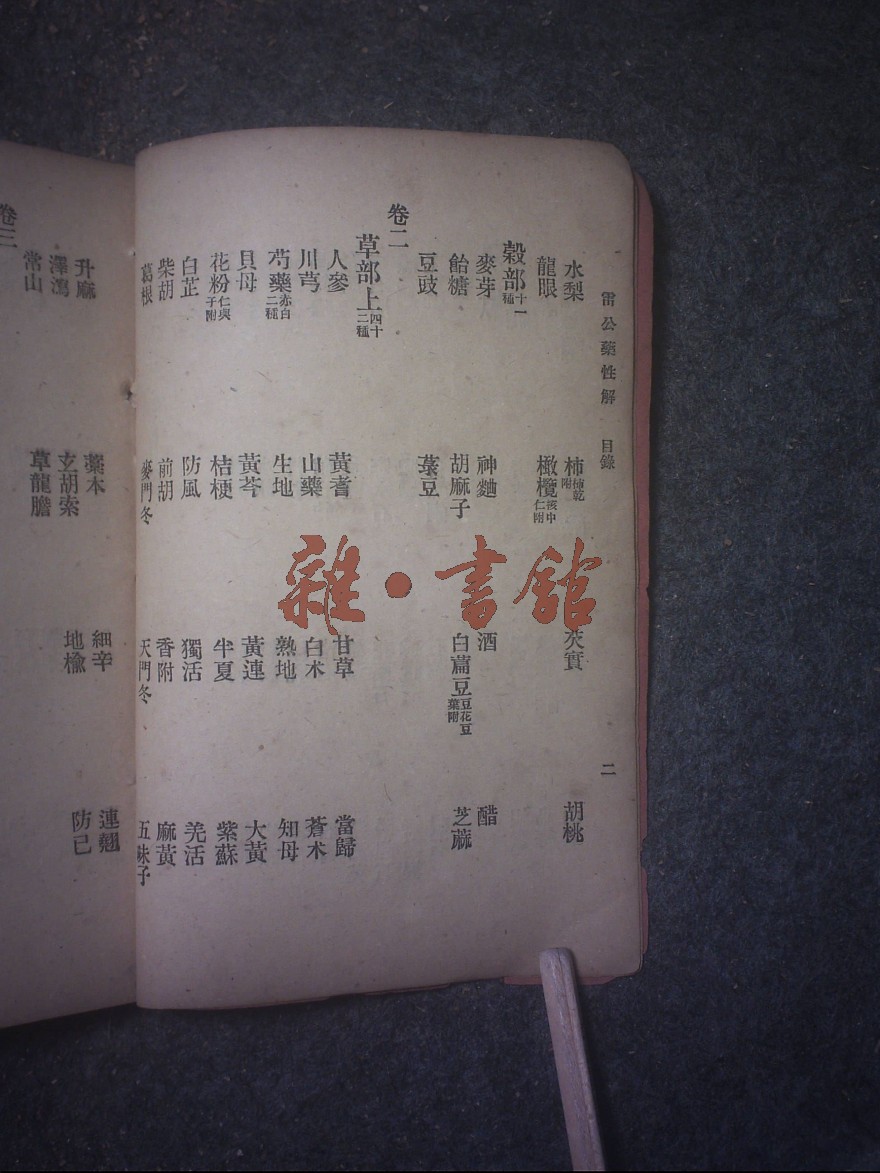 雷公藥性解 目錄 二
水梨 柿 附 胡桃
龍眼 橄欖 核中仁附 芡實
穀部 十一種
麥芽 神麯 酒 醋
飴糖 胡麻子 白藊豆 豆花豆葉附 芝蔴
豆豉 菉豆
卷二
草部上 四十二種
人參 黃耆 甘草 當歸
川芎 山藥 白朮 蒼朮
芍藥 赤白二種 生地 熟地 知母
貝母 黃芩 黃連 大黃
花粉 仁與子附 桔梗 半夏 紫蘇
白芷 防風 獨活 羌活
柴胡 前胡 香附 麻黃
葛根 麥門冬 天門冬 五味子
升麻 藁本 細辛 連翹
澤瀉 玄胡索 地榆 防己
常山 草龍膽
卷三
雜·書館